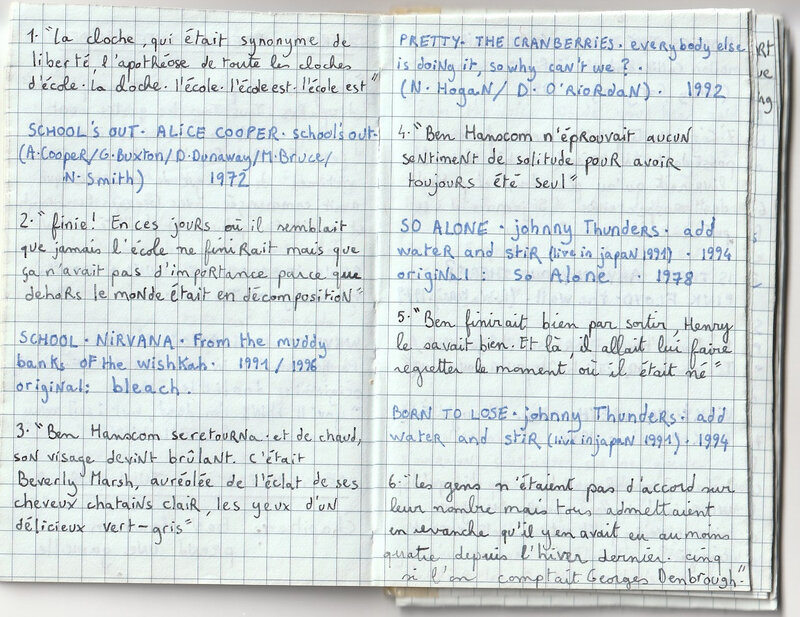 1. "La cloche, qui était synonyme de
liberté, l'apothéose de toute les cloches
d'école. La cloche. l'école. l'école est. l'école est"
SCHOOL'S OUT. ALICE COOPER. school's out.
(A. Cooper/G. Buxton/D. Dunaway/M. Bruce/
N. Smith) 1972
2. "finie! En ces jours où il semblait
que jamais l'école ne finirait mais que
ça n'avait pas d'importance parce que
dehors le monde était en décomposition"
SCHOOL. NIRVANA. From the muddy
banks of the wishkah. 1991/1996
original: bleach.
3. "Ben Hanscom se retourna. et de chaud,
son visage devint brûlant. C'était
Beverly Marsh, auréolée de l'éclat de ses
cheveux chatains clair, les yeux d'un
délicieux vert-gris"
PRETTY. THE CRANBERRIES. everybody else
is doing it, so why can't we?.
(N. Hogan/ D. O'Riordan). 1992
4. "Ben Hanscom n'éprouvait aucun
sentiment de solitude pour avoir
toujours été seul"
SO ALONE. johnny Thunders. add
water and stir (live in japan 1991). 1994
original: So Alone. 1978
5. "Ben finirait bien par sortir, Henry
le savait bien. Et là, il allait lui faire
regretter le moment où il était né"
BORN TO LOSE. johnny Thunders. add
water and stir (live in japan 1991). 1994
6. "Les gens n'étaient pas d'accord sur
leur nombre mais tous admettaient
en revanche qu'il y en avait eu au moins
quatre depuis l'hiver dernier. cinq
si l'on comptait Georges Denbrough"